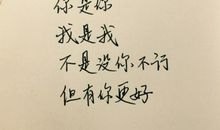 你是你
我是我
不是没你、不行
但有你更好